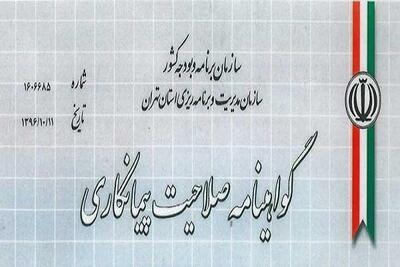 سازمان برنامه و بودجه کشور
سازمان مدیریت و برنامه ریزی استان تهران
شماره ۱۶۰۶۶۸۵
تاریخ ۱۳۹۶/۱۰/۱۱
گواهینامه صلاحیت پیمانکاری